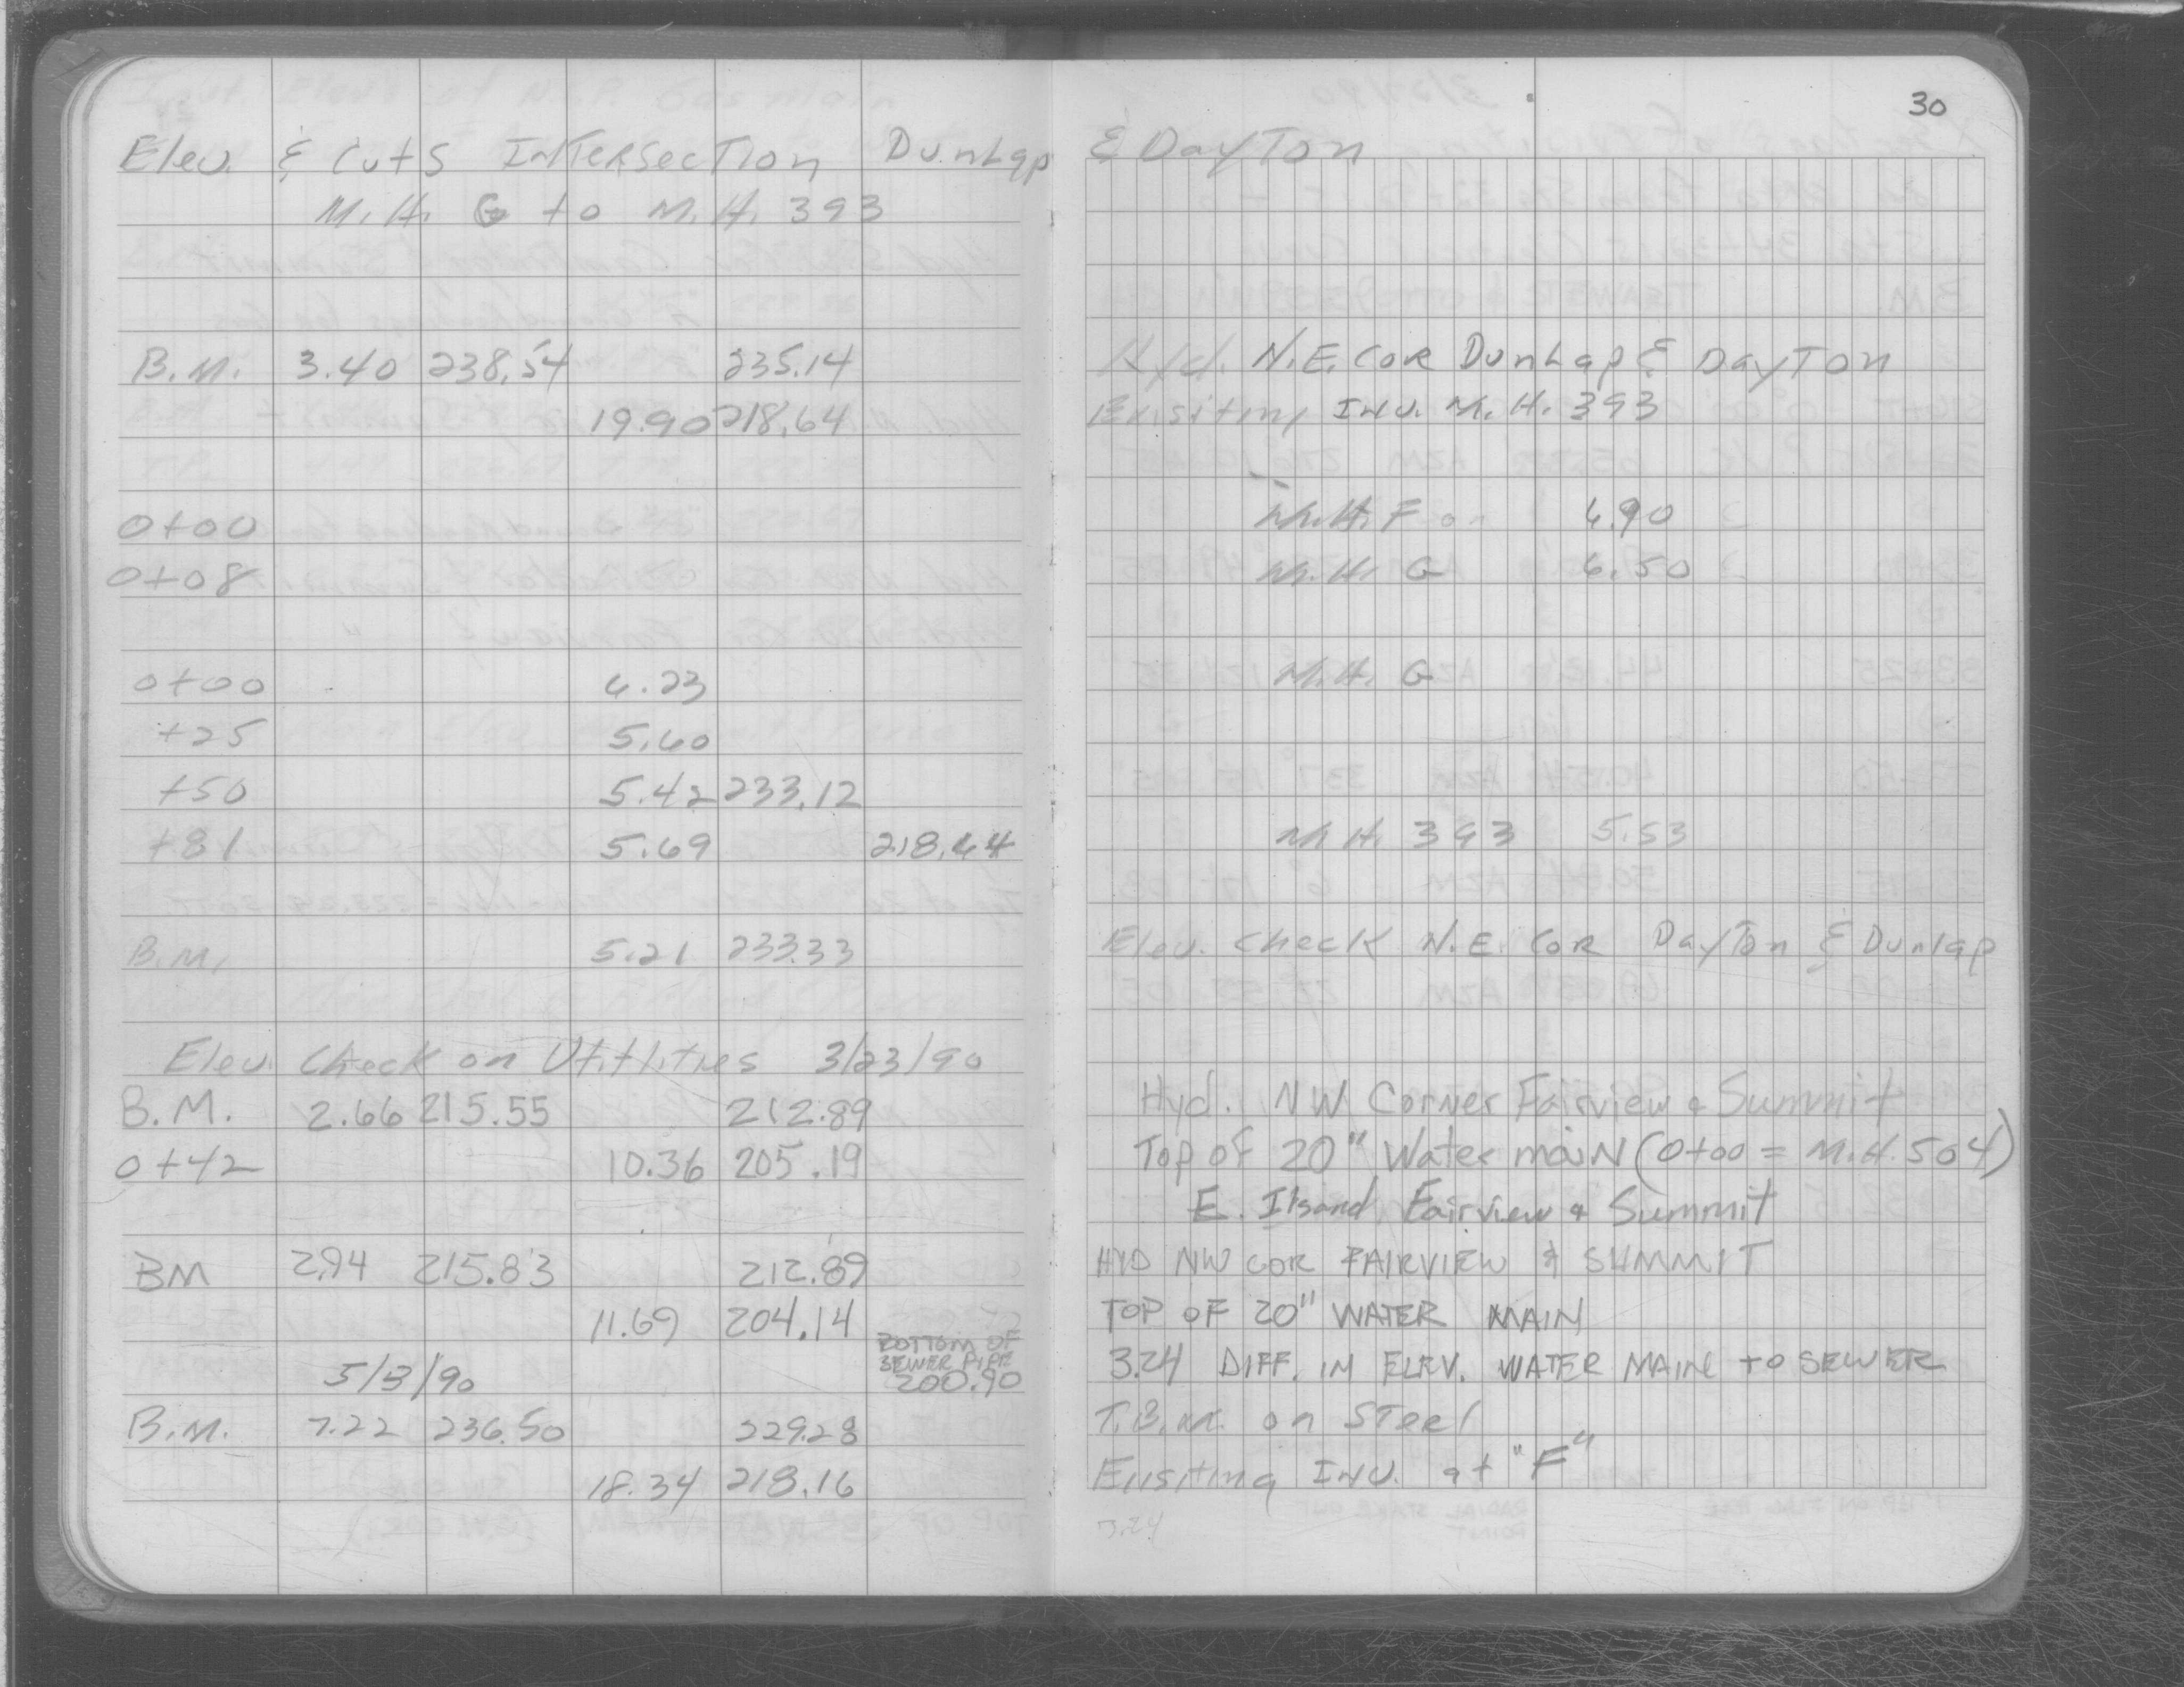 30
Elev. & Cuts Intersection Dunlap & Dayton
M.H. G to M.H. 393
B.M. 3.40 238.54 235.14 Hyd. N.E. Cor Dunlap & Dayton
19.90 218.64 Inv. M.H. 393
0+00 M.H. F on 6.90
0+08 M.H. G 6.50
0+00 6.23 M.H. G
+25 5.60
+50 5.42 233.12
+81 5.69 218.64 M.H. 393 5.53
B.M. 5.21 233.33 Elev. Check N.E. Cor Dayton & Dunlap
Elev. Check on Utitlities 3/23/90
B.M. 2.66 215.55 212.89 Hyd. NW Corner Fairview & Summit
0+42 10.36 205.19 Top of 20" Water main (0+00 = M.H. 504)
E. Ilsand Fairview & Summit
BM 2.94 215.83 212.89 HYD NW COR FAIRVIEW & SUMMIT
11.69 204.14 TOP OF 20" WATER MAIN
BOTTOM OF
SEWER PIPE
5/3/90 200.90 3.24 DIFF. IN ELEV. WATER MAIN to SEWER
B.M. 7.22 236.50 229.28 T.B.M. on Steel
18.34 218.16 Exisiting Inv. at "F"
3.24